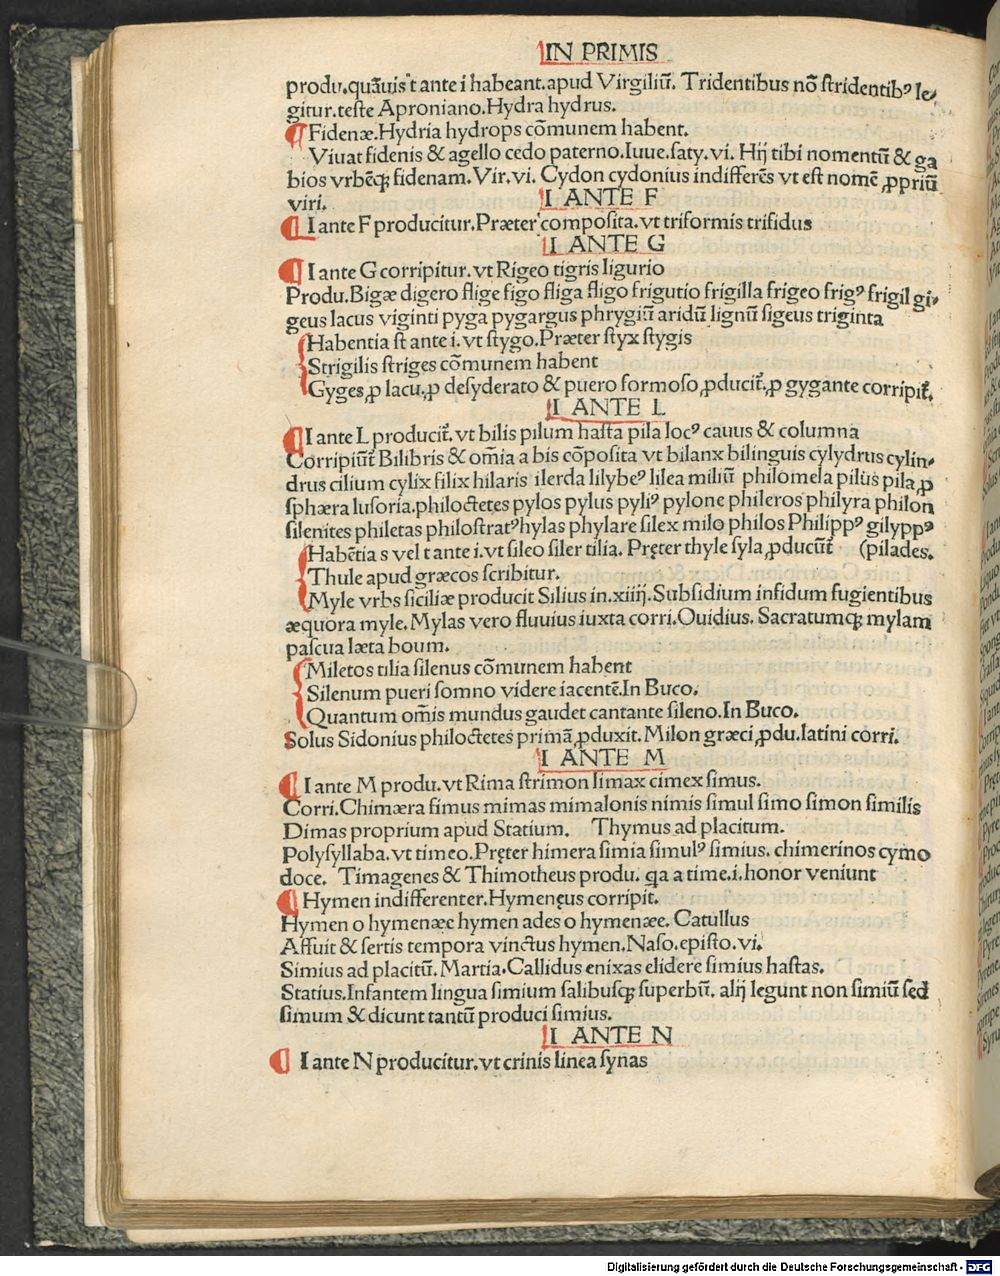 IN PRIMIS
produ.quãuis t ante i habeant.apud Virgiliũ. Tridentibus nõ stridentibꝰ le-
gitur.teste Aproniano.Hydra hydrus.
¶ Fidenæ.Hydria hydrops cõmunem habent.
Viuat fidenis & agello cedo paterno.Iuue.saty.vi. Hij tibi nomentũ & ga
bios vrbẽqꝫ fidenam.Vir.vi. Cydon cydonius indifferẽs vt est nomẽ ꝓpriũ
viri.
I ANTE F
¶ I ante F producitur.Præter composita.vt triformis trifidus
I ANTE G
¶ I ante G corripitur.vt Rigeo tigris ligurio
Produ.Bigæ digero flige figo fliga fligo frigutio frigilla frigeo frigꝰ frigil gi-
geus lacus viginti pyga pygargus phrygiũ aridũ lignũ sigeus triginta
Habentia st ante i.vt stygo.Præter styx stygis
Strigilis striges cõmunem habent
Gyges ꝓ lacu.ꝓ desyderato & puero formoso ꝓducit̃.ꝓ gygante corripit̃.
I ANTE L
¶ I ante L producit̃.vt bilis pilum hasta pila locꝰ cauus & columna
Corripiũt̃ Bilibris & om̃ia a bis cõposita vt bilanx bilinguis cylydrus cylin-
drus cilium cylix filix hilaris ilerda lilybeꝰ lilea miliũ philomela pilus pila ꝓ
sphæra lusoria.philoctetes pylos pylus pyliꝰ pylone phileros philyra philon
silenites philetas philostratꝰ hylas phylare silex milo philos Philippꝰ gilyppꝰ
Habẽtia s vel t ante i.vt sileo siler tilia. Pręter thyle syla ꝓducũt̃ (pilades.
Thule apud græcos scribitur.
Myle vrbs siciliæ producit Silius in.xiiij.Subsidium infidum fugientibus
æquora myle.Mylas vero fluuius iuxta corri.Ouidius. Sacratumqꝫ mylam
pascua læta boum.
Miletos tilia silenus cõmunem habent
Silenum pueri somno videre iacentẽ.In Buco.
Quantum om̃is mundus gaudet cantante sileno.In Buco.
Solus Sidonius philoctetes primã ꝓduxit. Milon græci ꝓdu.latini corri.
I ANTE M
¶ I ante M produ.vt Rima strimon limax cimex simus.
Corri.Chimæra fimus mimas mimalonis nimis simul simo simon similis
Dimas proprium apud Statium. Thymus ad placitum.
Polysyllaba.vt timeo.Pręter himera simia simulꝰ simius. chimerinos cymo
doce. Timagenes & Thimotheus produ. qa a time.i.honor veniunt
¶ Hymen indifferenter.Hymenęus corripit.
Hymen o hymenæe hymen ades o hymenæe. Catullus
Affuit & sertis tempora vinctus hymen.Naso.episto.vi.
Simius ad placitũ. Martia.Callidus enixas elidere simius hastas.
Statius.Infantem lingua simium salibusqꝫ superbũ. alij legunt non simiũ sed
simum & dicunt tantũ produci simius.
I ANTE N
¶ I ante N producitur.vt crinis linea synas
Digitalisierung gefördert durch die Deutsche Forschungsgemeinschaft - DFG